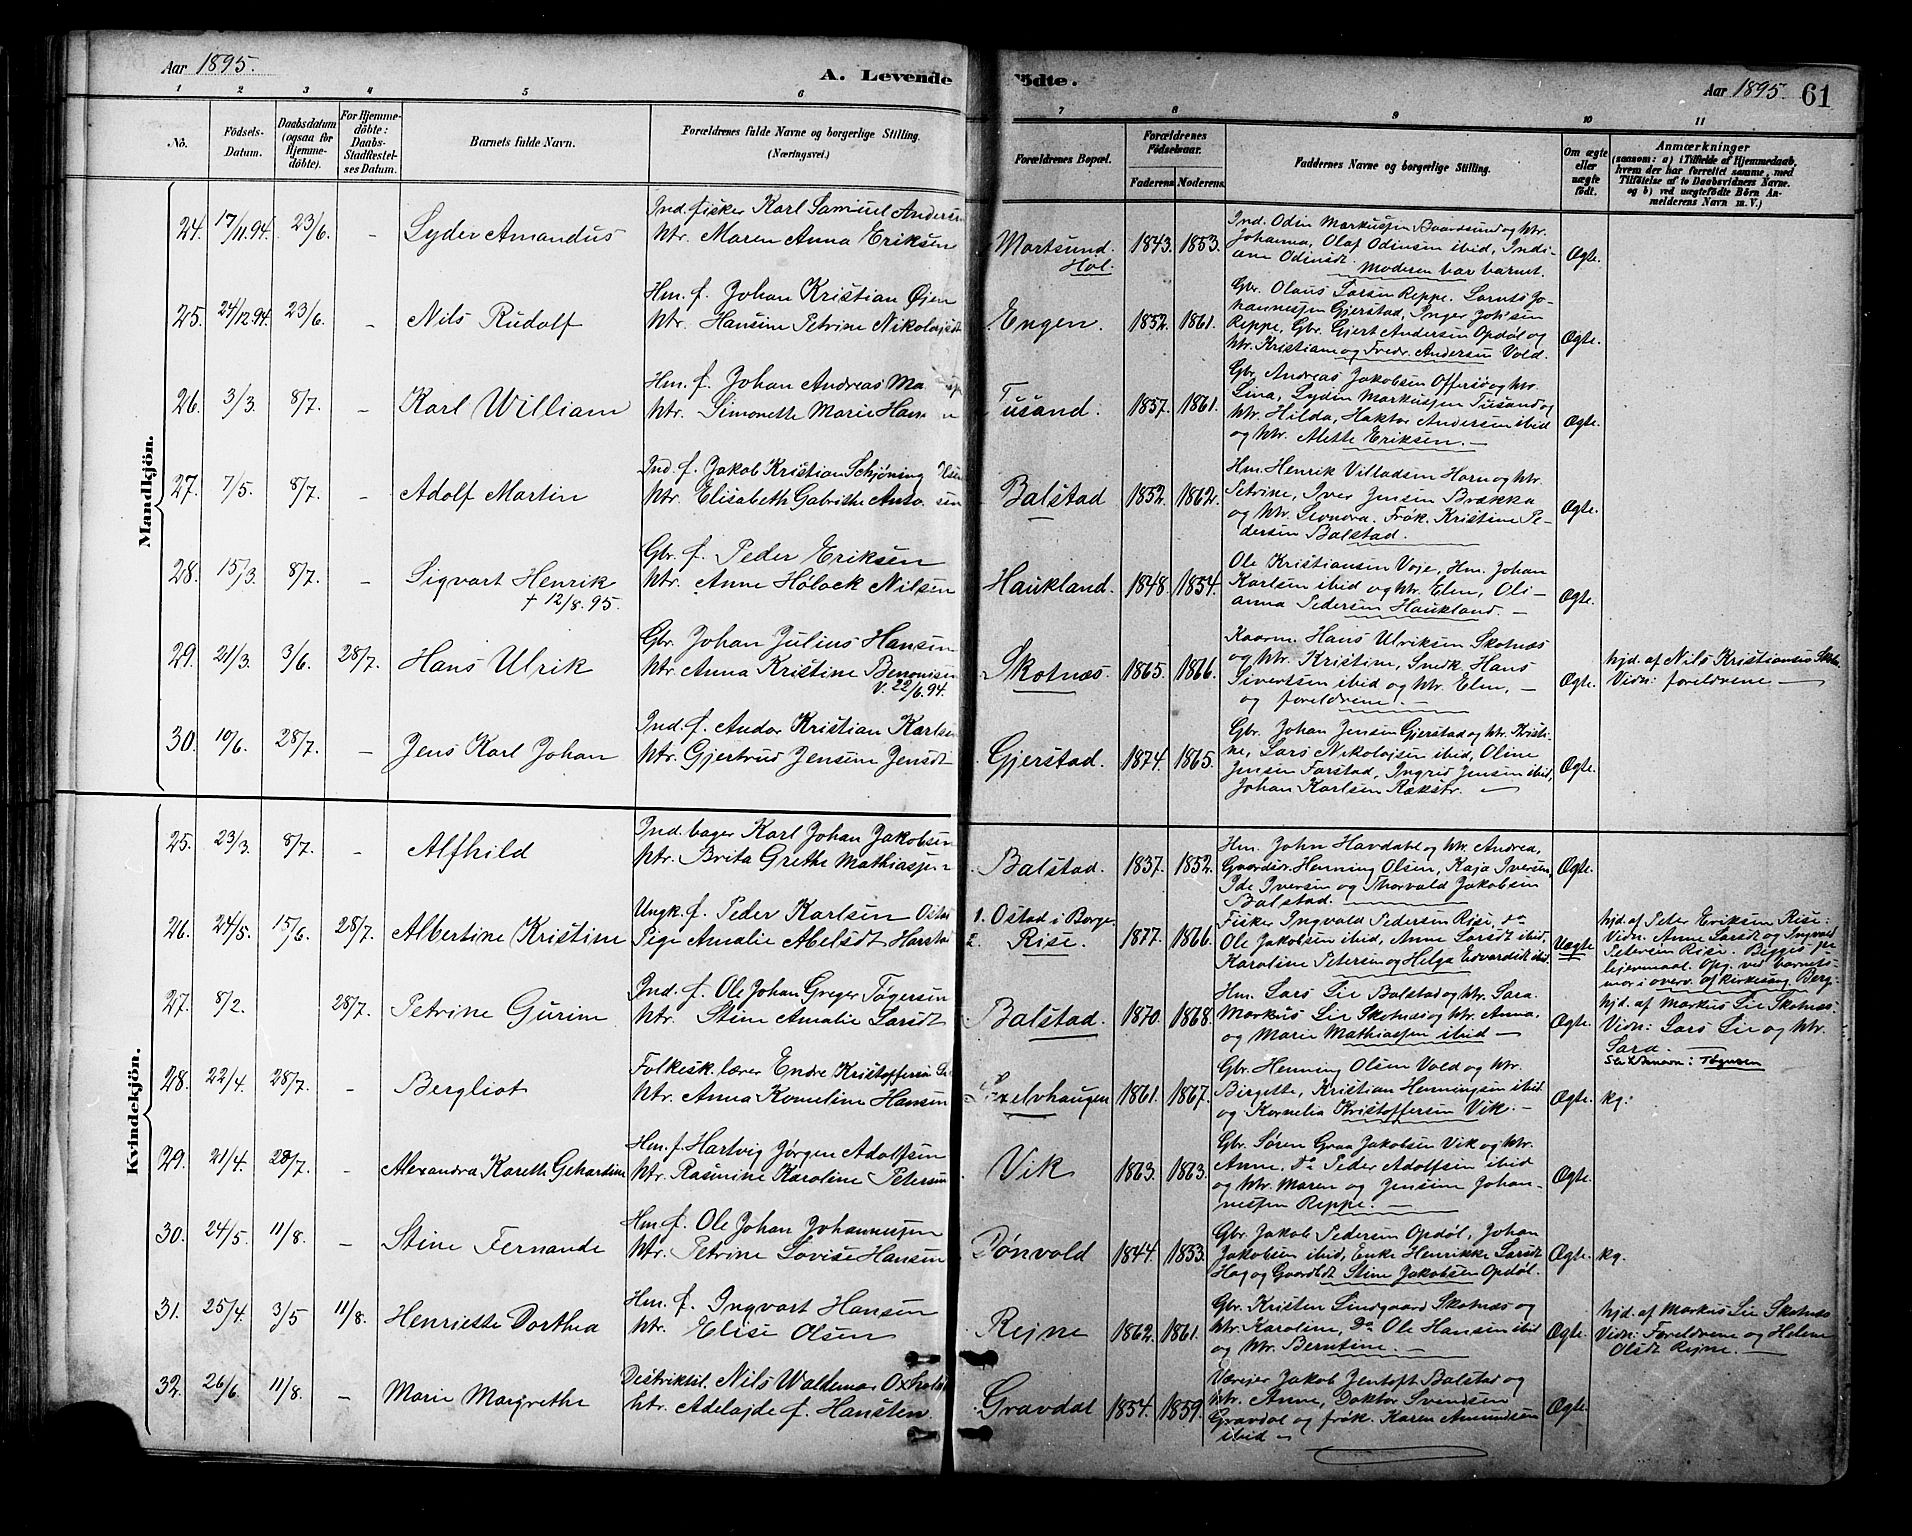 Aar 1895.
A. Levende
1 2 3 4 5 6
No.
Födsels-Datum.
Daabsdatum (ogsaa for Hjemmedöbte).
For Hjemmedöbte: Daabs-Stadfæstelses Datum.
Barnets fulde Navn.
Forældrenes fulde Navne og borgerlige Stilling.
(Næringsvei.)
Mandkjön.
24. 17/11.94. 23/6. - Lyder Amandus
Ind. fisker Karl Samuel Anders
Htr. Maren Anna Eriksen
25. 24/12.94. 23/6. - Nils Rudolf
Hm. f. Johan Kristian Øjen
Htr. Hansine Petrine Nikolajsdt
26. 3/3. 8/7. - Karl William
Hm. f. Johan Andreas Ma
Htr. Simonette Marie Han
27. 7/5. 8/7. - Adolf Martin
Ind. f. Jakob Kristian Schjøning Olsen
Htr. Elisabeth Gabrithe Anto sen
28. 15/3. 8/7. - Sigvart Henrik
† 12/8.95.
Gbr. f. Peder Eriksen
Htr. Anne Holock Nilsen
29. 21/3. 3/6. 28/7. Hans Ulrik
Gbr. Johan Julius Hansen
Htr. Anna Kristine Benonisen
V. 22/6.94.
30. 10/6. 28/7. - Jens Karl Johan
Ind. f. Andor Kristian Karlsen
Htr. Gjertrud Jensine Jensdt
Kvindekjön.
25. 23/3. 8/7. - Alfhild
Ind. bager Karl Johan Jakobsen
Htr. Brita Grethe Mathiassen
26. 24/5. 15/6. 28/7. Albertine Kristine
Ungk. f. Peder Karlsen Ostad
Pige Amalie Abelsdt Harstad
27. 8/2. 28/7. Petrine Gurine
Ind. f. Ole Johan Greger Tøgersen
Htr. Stine Amalie Larsdt
28. 22/4. 28/7. - Bergliot
Folkesk.lærer Endre Kristoffersen
Htr. Anna Korneline Hansen
29. 21/4. 28/7. - Alexandra Kareth Gehardine
Hm. f. Hartvig Jørgen Adolfsen
Htr. Rasmine Karoline Petersen
30. 24/5. 11/8. - Stine Fernande
Hm. f. Ole Johan Johannesen
Htr. Petrine Lovise Hansen
31. 25/4. 3/5 11/8. Henriette Dorthea
Hm. f. Ingvart Hansen
Htr. Elise Olsen
32. 26/6 11/8. - Marie Margrethe
Distriktsl. Nils Waldemar Oxholm
Htr. Adelajde f. Hansten.
födte.
Aar 1895. 61
7 8 9 10 11
Forældrenes Bopæl.
Forældrenes Födselsaar.
Faderens. Moderens.
Faddernes Navne og borgerlige Stilling.
Om ægte eller uægte födt.
Anmærkninger
(saasom: a) i Tilfælde af Hjemmedaab,
hvem der har forrettet samme, med
Tilföielse af to Daabsvidners Navne.
og b) ved uægtefödte Börn Anmelderens Navn m. V.)
Mortsund. Hol. 1843. 1853.
Ind. Odin Markussen Baardsund og Htr.
Johanna, Olaf Odinsen ibid, Indi-
ane Odinsdt. Moderen bar barnet.
Ægte.
Engen. 1852. 1861.
Gbr. Olaus Larsen Reppe. Lornts Jo-
hannessen Gjerstad, Inger Joh'sen
Reppe, Gbr. Gjert Andersen Opdøl og
Htr. Kristiane og Fredr. Andersen Vold.
Ægte.
Tusand. 1857. 1861.
Gbr. Andreas Jakobsen Offersø og Htr.
Lina, Lyder Markussen Tusand og
Htr. Hilda, Haktor Andersen ibid
og Htr. Alette Eriksen. -
Ægte.
Balstad 1852. 1862.
Hm. Henrik Villadsen Horn og Htr.
Petrine, Iver Jensen Brækka
og Htr. Leonora. Frøk. Kristine Pe-
dersen Balstad.
Ægte.
Haukland. 1848. 1854.
Ole Kristiansen Voje, Hm. Johan
Karlsen ibid og Htr. Elen, Oli-
anna Pedersen Haukland. -
Ægte.
Skotnæs. 1865. 1866.
Kaarm. Hans Ulriksen Skotnæs
og Htr. Kristine, Snedk. Hans
Sivertsen ibid og Htr. Elen, -
og foreldrene. -
Ægte.
hjd. af Nils Kristiansen Skotn.
Vidn: foreldrene -
Gjerstad. 1874. 1865.
Gbr. Johan Jensen Gjerstad og Htr. Kristi-
ne, Lars Nikolajsen ibid, Oline
Jensen Farstad, Ingrid Jensen ibid,
Johan Karlsen Rækstr. -
Ægte.
Balstad. 1837. 1852.
Hm. John Havdahl og Htr. Andrea,
Gaardsbr. Henning Olsen, Kaja Iversen,
Ide Iversen og Thorvald Jakobsen
Balstad.
Ægte.
1. Ostad i Borge
2. Rise. 1877. 1866.
Fisker Ingvald Pedersen Rise, do
Ole Jakobsen ibid, Anne Larsdt ibid,
Karoline Petersen og Helga Edvardsdt ibid.
Uægte
hjd. af Peter Eriksen Rise:
Vidn: Anne Larsdt og Ingvald
Petersen Rise. Begges 1ste
lejermaal. Opg. ved barnets
mor i overv. af kirkesang. Berg.
Balstad. 1870. 1868.
Hm. Lars Lie Balstad og Htr. Sara.
Markus Lie Skotnæs og Htr. Anna,
og Marie Mathiassen ibid -
Ægte.
hjd. af Markus Lie Skotnæs.
Vidn: Lars Lie og Htr.
Sara. -
Slektsnavn: Tøgersen
Lixelvhaugen 1861. 1867.
Gbr. Henning Olsen Vold og Htr.
Birgitte, Kristian Henningsen ibid
og Kornelia Kristoffersen Vik. -
Ægte. kg:
Vik 1863. 1863.
Gbr. Søren Graa Jakobsen Vik og Htr.
Anne, Do Peder Adolfsen ibid
og Htr. Maren og Jensine Johan-
nessen Reppe. -
Ægte.
Pønvold 1844. 1853.
Gbr. Jakob Pedersen Opdøl, Johan
Jakobsen ibid, Enke Henrikke Larsdt
Hag og Gaardbdt Stine Jakobsen Opdøl.
Ægte. kg.
Rejne 1862. 1861.
Gbr. Kristen Lindgaard Skotnæs og
Htr. Karoline, Do Ole Hansen ibid
og Htr. Berntine. -
Ægte.
hjd. af Markus Lie Skotnæs
Vidn: Foreldrene og Helene
Olsdt Rejne. -
Gravdal 1854. 1859.
Værejer Jakob Jentoft Balstad og
Htr. Anne, Doktor Svendsen
Gravdal og frøk. Karen Amundsen
ibid -
Ægte.